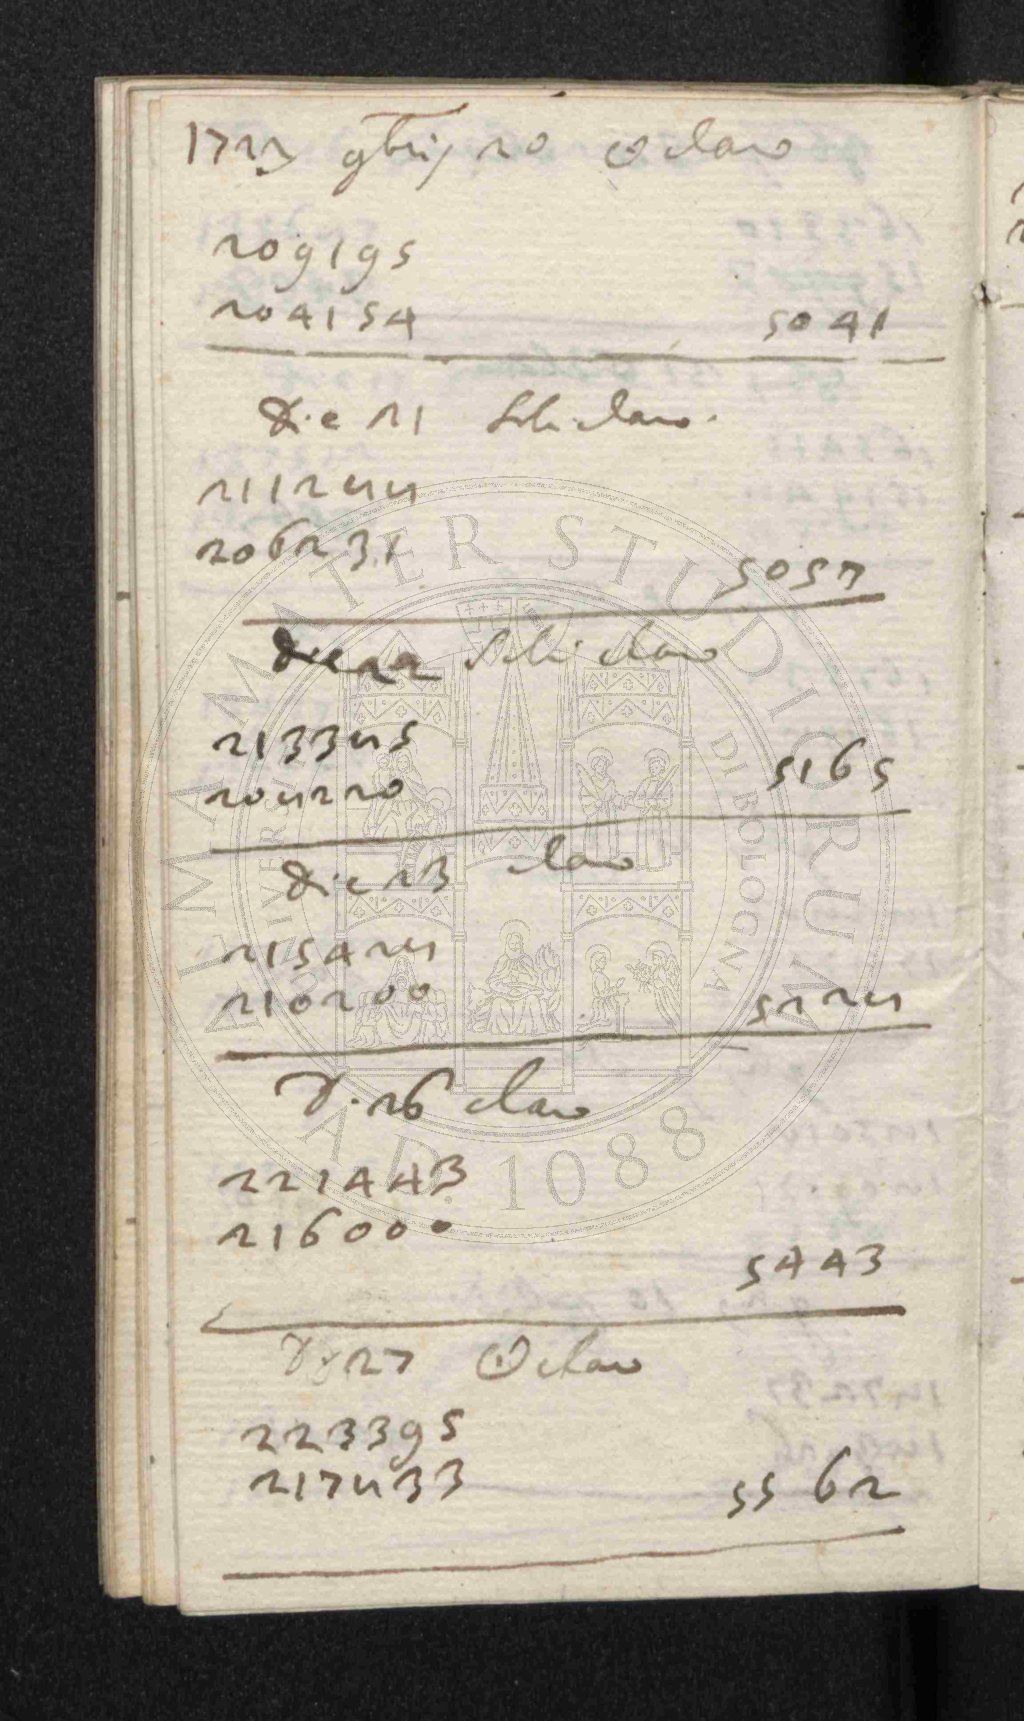 1723 9bris 20 ☉ claro
209195
204154 5041
Die 21 claro.
211288
206231
5057
Die 22 claro
213385
208220 5165
Die 23 claro
215428
210200 5228
D. 26 claro
221443
216000
5443
D. 27 ☉ claro
223395
217833 5562
ALMA MATER STUDIORUM
UNIVERSITÀ DI BOLOGNA
A.D. 1088